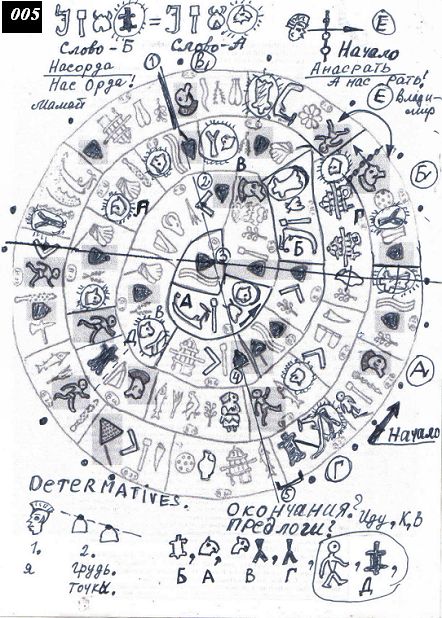 005
= Е
Слово-Б Слово-А Начало
Насорда
Нас Орда!
Мамай
Анасрать
А нас рать!
Е Влади-
мир
1 В
Б
2 В
А Г
Б
3
А
В
Д
4
А
Начало
5 Г
DETERMATIVES.
ОКОНЧАНИЯ?
ПРЕДЛОГИ? Иду, К, В
1. 2.
я грудь.
точки.
Б А В Г Д